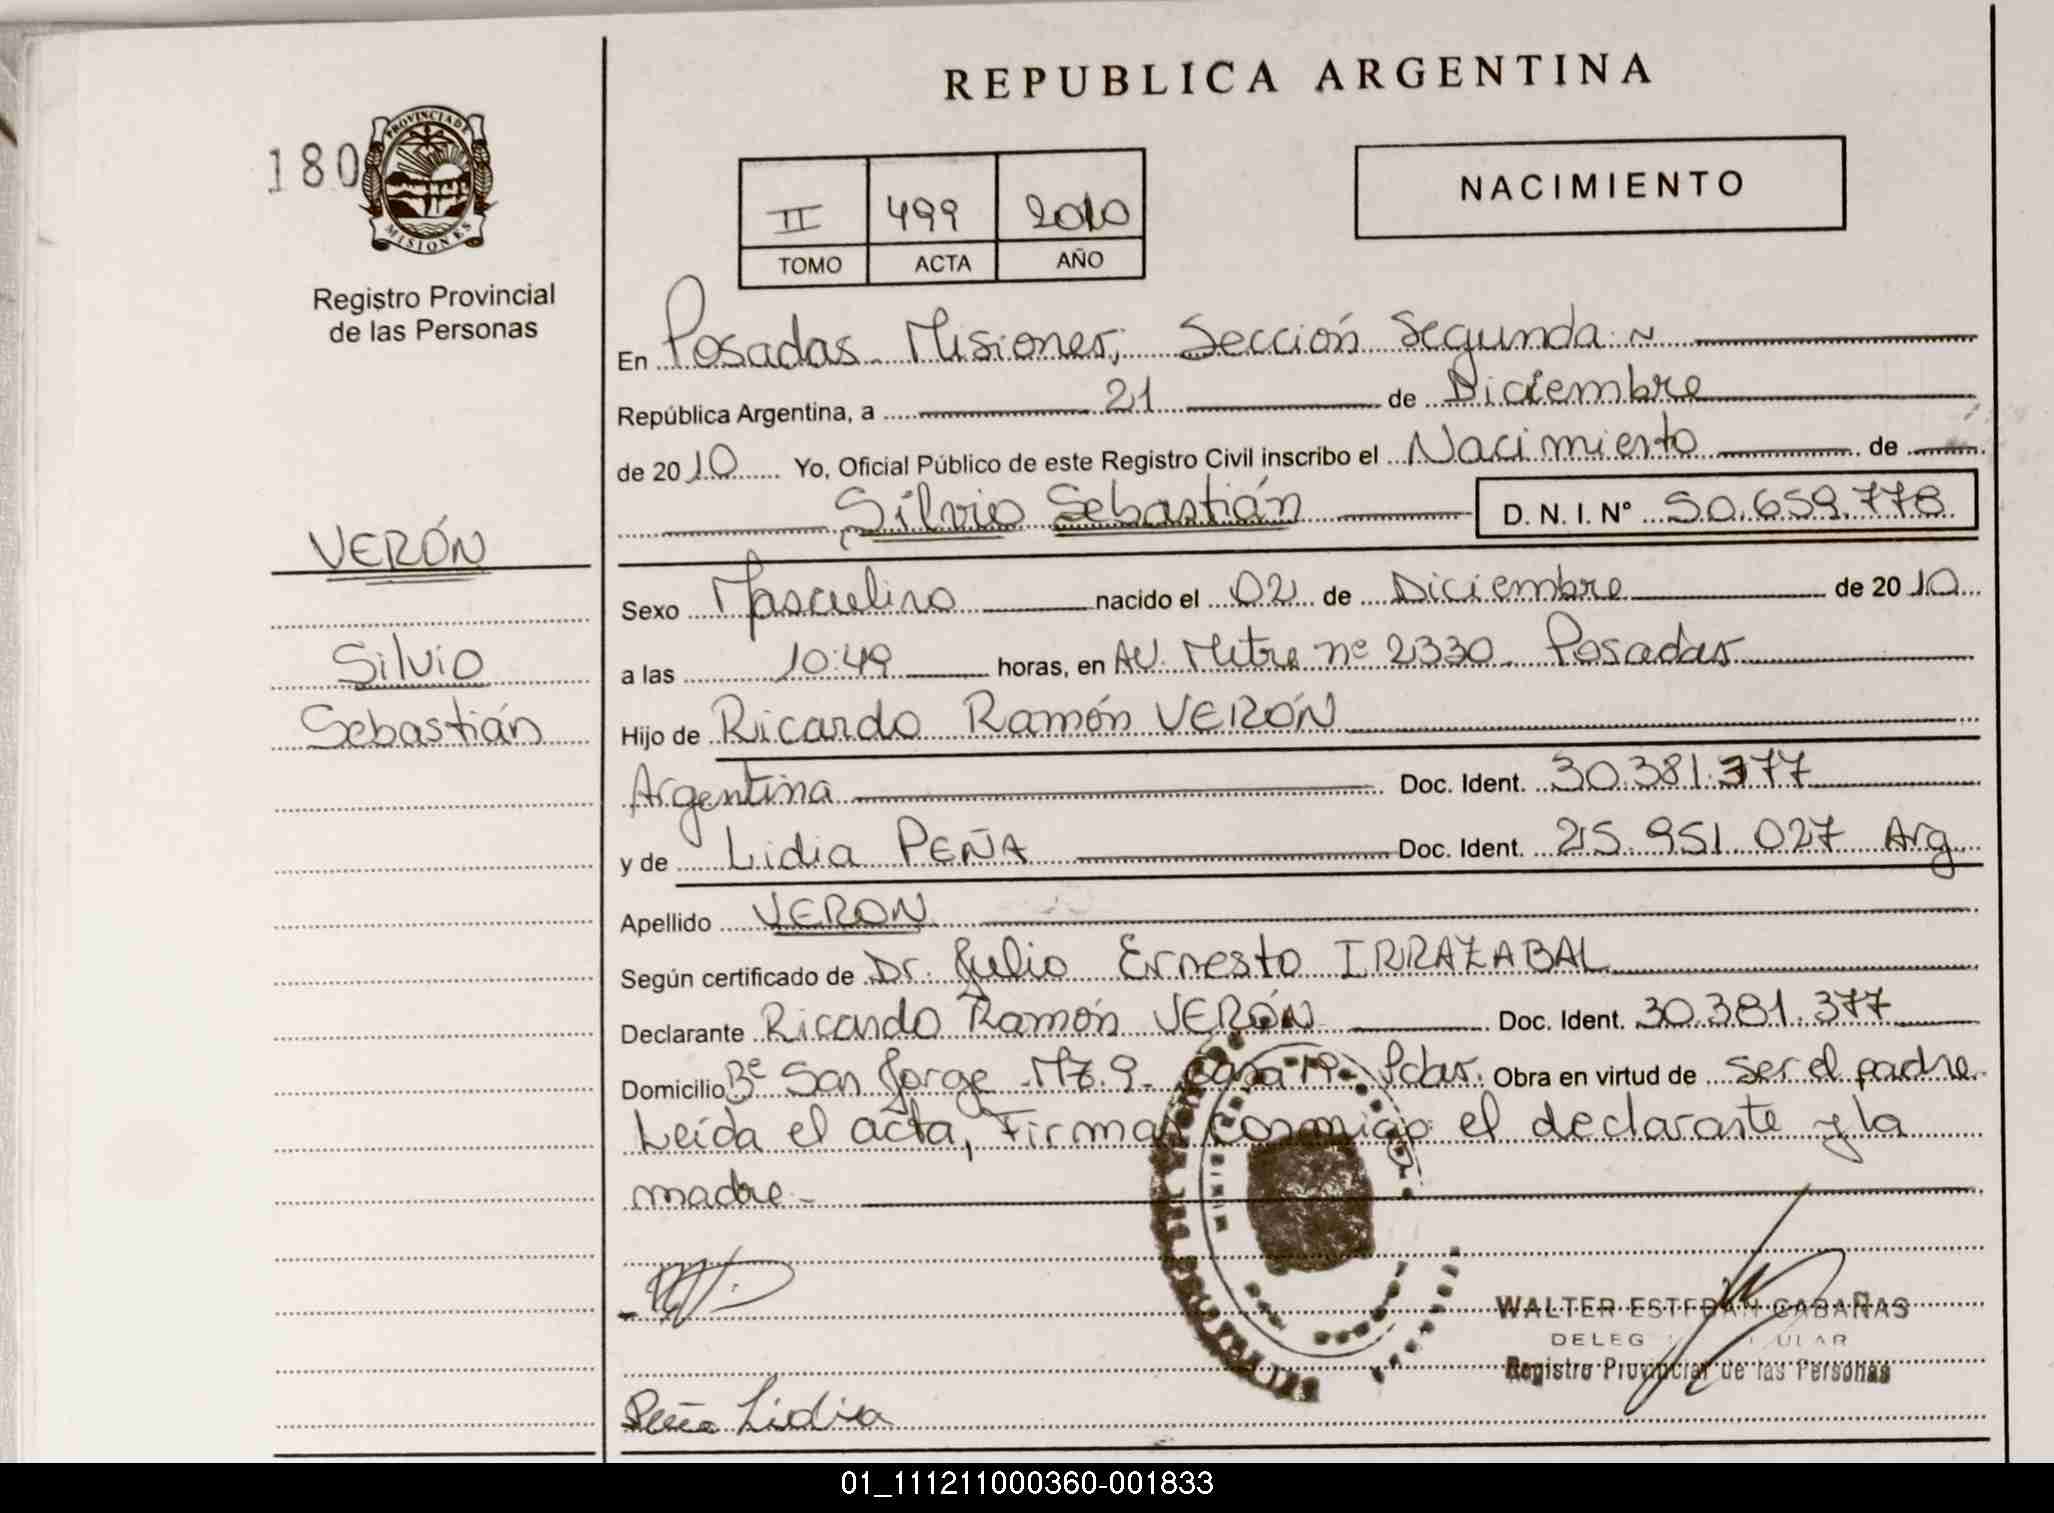 REPUBLICA ARGENTINA
180
PROVINCIA DE
MISIONES
Registro Provincial
de las Personas
II 499 2010
TOMO ACTA AÑO
NACIMIENTO
En Posadas Misiones, Sección Segunda
República Argentina, a 21 de Diciembre
de 2010 Yo, Oficial Público de este Registro Civil inscribo el Nacimiento de
Silvio Sebastián D. N. I. Nº 50.659.778
VERÓN
Silvio
Sebastián
Sexo Masculino nacido el 02 de Diciembre de 2010
a las 10:49 horas, en AV. Mitre nº 2330 Posadas
Hijo de Ricardo Ramón VERÓN
Argentina Doc. Ident. 30.381.377
y de Lidia PEÑA Doc. Ident. 25.951.027 Arg
Apellido VERON
Según certificado de Dr. Julio Ernesto IRRAZABAL
Declarante Ricardo Ramón VERÓN Doc. Ident. 30.381.377
Domicilio Bº San Jorge Mz. 9 casa 19 Pdas. Obra en virtud de ser el padre
Leída el acta, Firman conmigo el declarante y la
madre.-
WALTER ESTEBAN CABAÑAS
Registro Provincial de las Personas
Peña Lidia
01_111211000360-001833